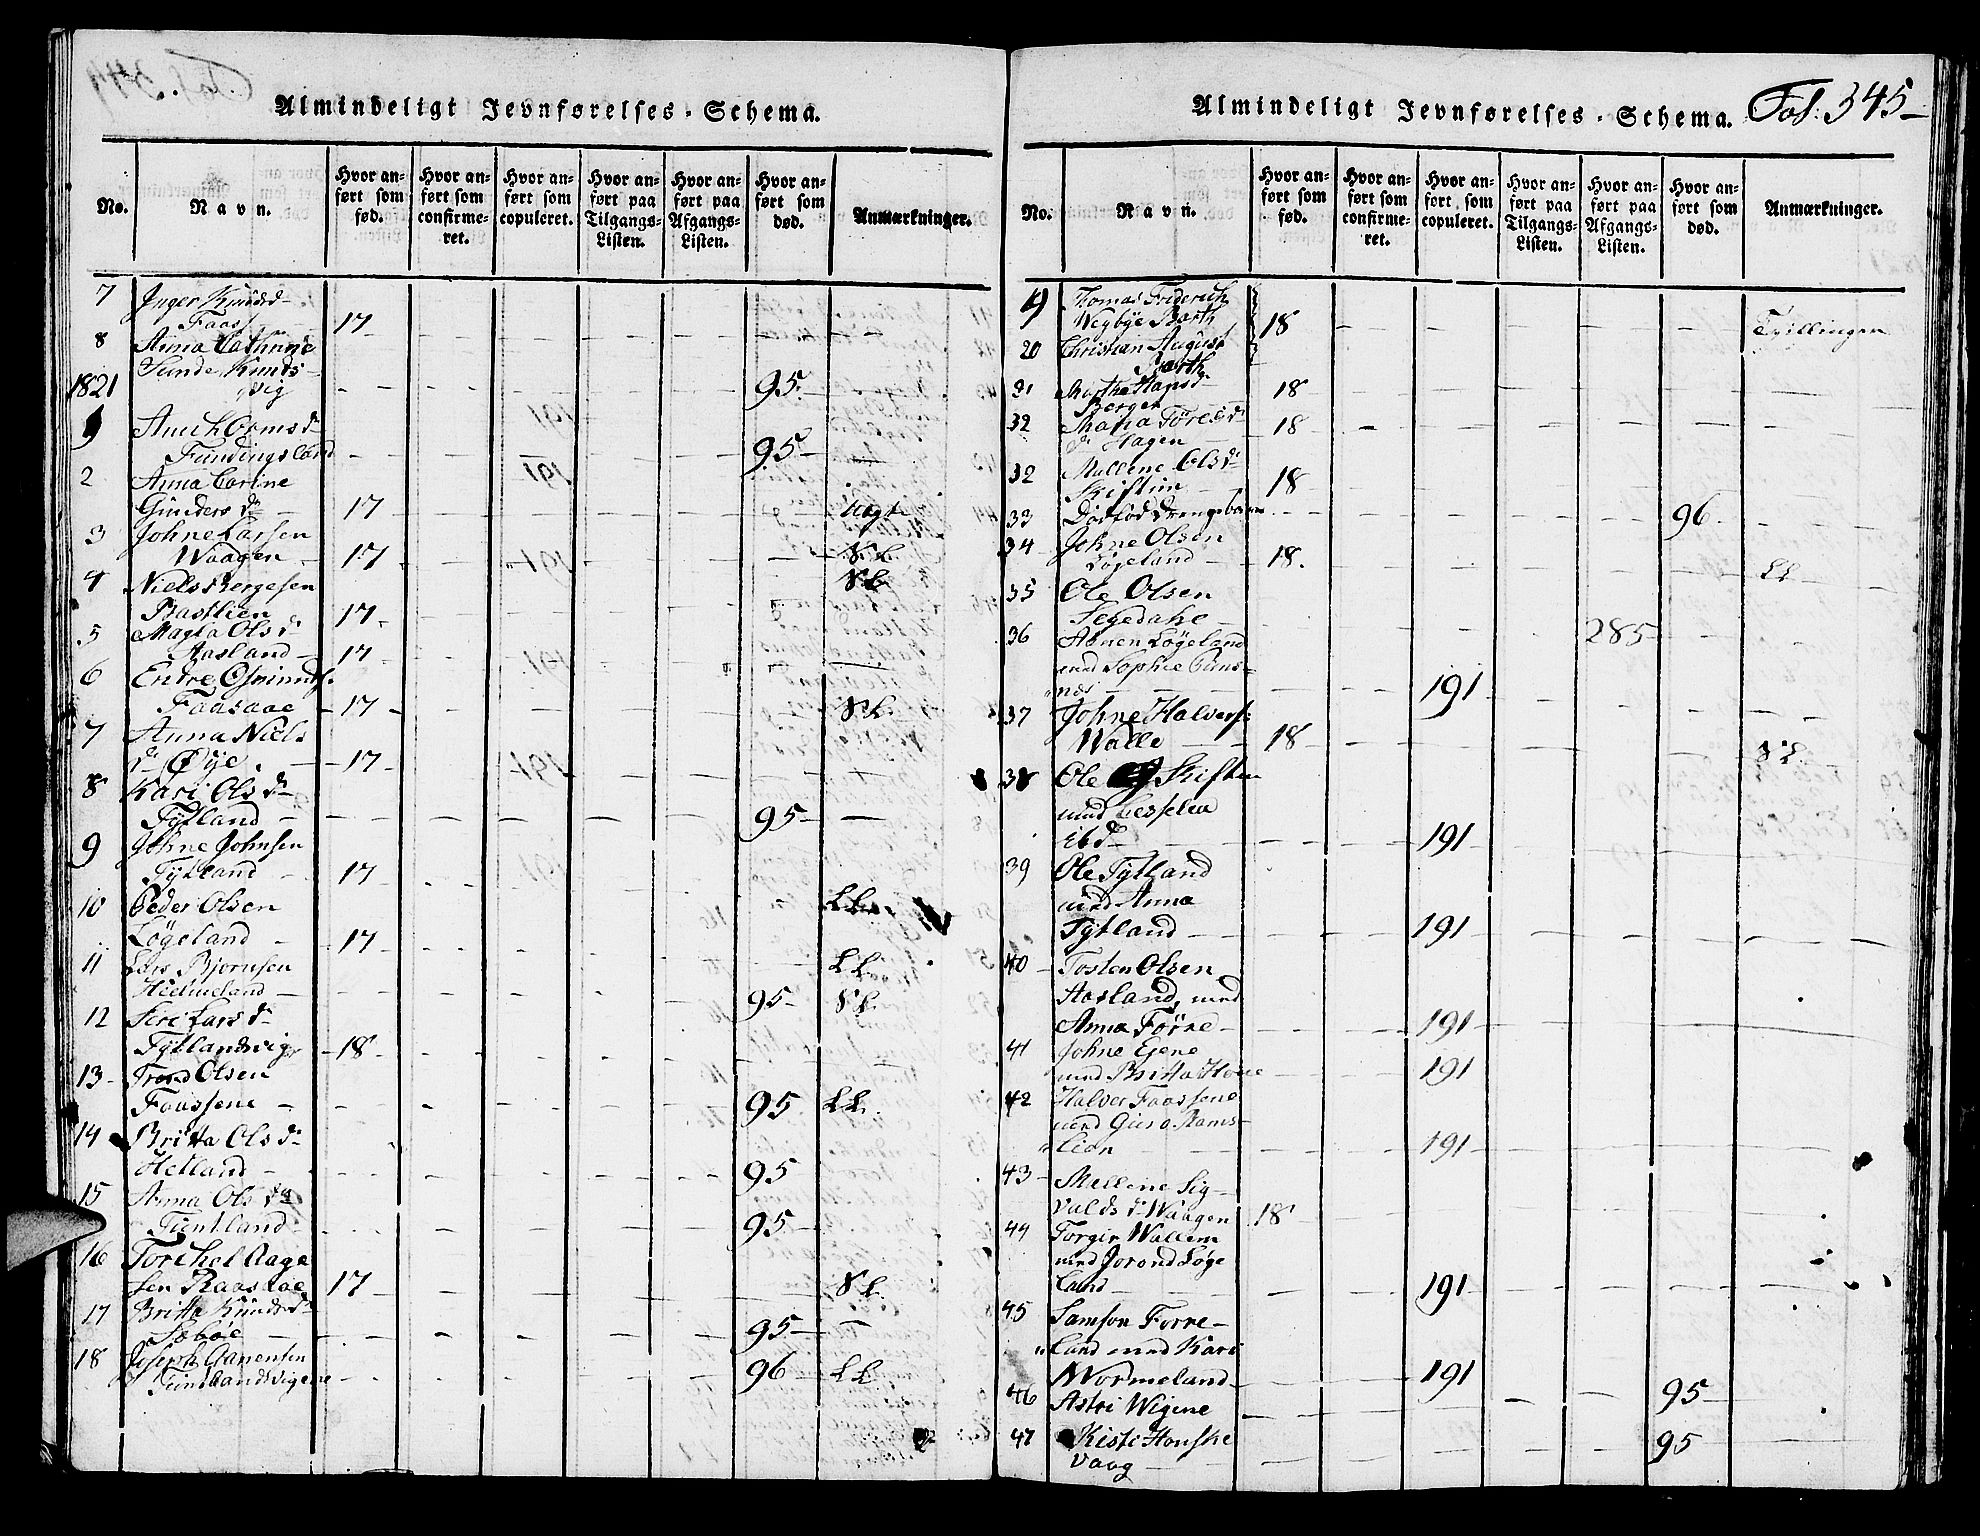 Almindeligt Jevnførelses-Schema.
No.
Navn.
Hvor anført som fød.
Hvor anført som confirmeret.
Hvor anført som copuleret.
Hvor anført paa Tilgangs-Listen.
Hvor anført paa Afgangs-Listen.
Hvor anført som død.
Anmærkninger.
7 Inger Knudsd
Faas 17
8 Anna Cathrine
Sunde Knuds
1821 vig 95.
Ormsd
Fundingsland 95
2 Anna Corine
Gunders d 17 Uegt
3 Johne Larsen
Waagen 17 SL.
4 Niels Børgesen SL
Bastlien 17
5 Magla Ols d
Aasland 17
6 Endre Osmunds.
Faasaae 17 SL.
7 Anna Niels
d Øye. 17
8 Kari Ols d
Tytland 95
9 Johne Johnsen
Tytland 17
10 Peder Olsen LL.
Løgeland 17
11 Lars Bjornsen LL
Hielmeland 95 SL.
12 Siri Lars d
Tytlandsvig 18
13 Trond Olsen
Faassene 95 LL.
14 Britta Ols d
Hetland 95
15 Anna Ols d
Tuntland 95
16 Torchel Aage
sen Raasaae 17 SL.
17 Britta Knuds d
Søbøe 95
18 Joseph Aanensen 96 LL
Tuntlandsvigene
Almindeligt Jevnførelses-Schema. Fol: 345
No.
Navn.
Hvor anført som fød.
Hvor anført som confirmeret.
Hvor anført som copuleret.
Hvor anført paa Tilgangs-Listen.
Hvor anført paa Afgangs-Listen.
Hvor anført som død.
Anmærkninger.
19 Thomas Friderich
Wegbye Barth 18 Tvillinger
20 Christian August
Barth
21 Marthe Hansd 18
Berger
32 Maria Tores d 18
Hagen
32 Mallene Ols d
Skiftun 18
33 Dødfød Drengebarn 96.
34 Johne Olsen
Løgeland 18. LL
35 Ole Olsen
Segedahl 285
36 Aanen Løgeland
med Sophie Tuns-
næs 191
37 Johne Halvers.
Walle 18 SL.
38 Ole Skiftun
med Cesselia
ibd 191
39 Ole Tytland
med Anna
Tytland 191
40 Tosten Olsen
Aasland, med
Anna Førre 191
41 Johne Eiene
med Britta Houe 191
42 Halver Faassene
med Guro Rams-
lien 191
43 Mallene Sig-
valds d Waagen 18
44 Torgir Wallem
med Jorond Løge
land 191
45 Samson Forre-
land med Kari
Wormeland 191
46 Astri Wigene 95
47 Kisti Houske 95
vaag